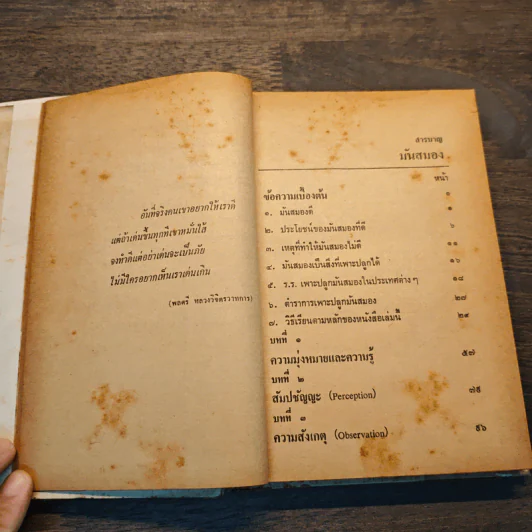 อันที่จริงคนเขาอยากให้เราดี
แต่ถ้าเด่นขึ้นทุกทีเขาหมั่นไส้
จงทำดีแต่อย่าเด่นจะเป็นภัย
ไม่มีใครอยากเห็นเราเด่นเกิน
(พลตรี หลวงวิจิตรวาทการ)
สารบาญ
มันสมอง
หน้า
ข้อความเบื้องต้น ๑
๑. มันสมองดี ๑
๒. ประโยชน์ของมันสมองที่ดี ๖
๓. เหตุที่ทำให้มันสมองไม่ดี ๑๑
๔. มันสมองเป็นสิ่งที่เพาะปลูกได้ ๑๖
๕. ร.ร. เพาะปลูกมันสมองในประเทศต่าง ๆ ๑๘
๖. ตำราการเพาะปลูกมันสมอง ๒๗
๗. วิธีเรียนตามหลักของหนังสือเล่มนี้ ๒๙
บทที่ ๑
ความมุ่งหมายและความรู้ ๕๗
บทที่ ๒
สัมปชัญญะ (Perception) ๗๕
บทที่ ๓
ความสังเกตุ (Observation) ๙๖